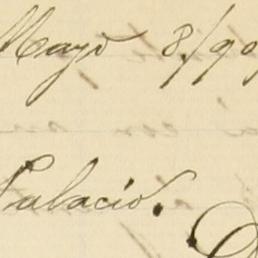 Mayo 8/90
Palacio.